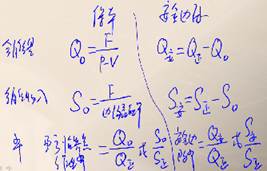 保本 安全边际
销售量 Q₀=F/P-V Q安=Q正-Q₀
销售收入 S₀=F/边际贡献率 S安=S正-S₀
率 =Q₀/Q正 或 S₀/S正 安全边际率=Q安/Q正 或 S安/S正